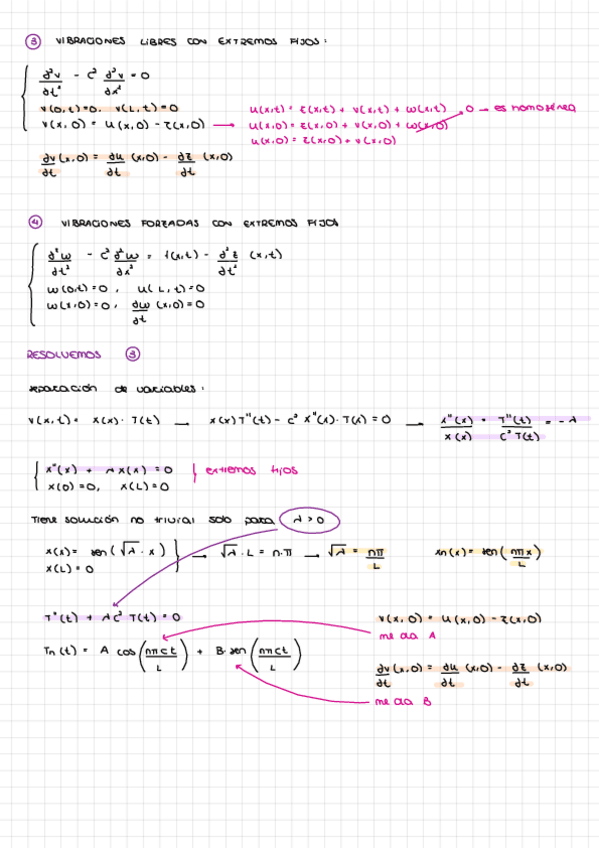 ③ VIBRACIONES LIBRES CON EXTREMOS FIJOS:
∂²v/∂t² - c² ∂²v/∂x² = 0
v(0,t)=0, v(L,t)=0
v(x,0) = u(x,0) - z(x,0) →
u(x,t) = z(x,t) + v(x,t) + ω(x,t) 0 → es homogénea
u(x,0) = z(x,0) + v(x,0) + ω(x,0)
u(x,0) = z(x,0) + v(x,0)
∂v/∂t (x,0) = ∂u/∂t (x,0) - ∂z/∂t (x,0)
④ VIBRACIONES FORZADAS CON EXTREMOS FIJOS
∂²ω/∂t² - c² ∂²ω/∂x² = f(x,t) - ∂²z/∂t² (x,t)
ω(0,t)=0, u(L,t)=0
ω(x,0)=0, ∂ω/∂t (x,0)=0
RESOLVEMOS ③
separación de variables:
v(x,t) = X(x) · T(t) → X(x)T''(t) - c² X''(x)·T(x) = 0 → X''(x)/X(x) = T''(t)/c²T(t) = -λ
X''(x) + λX(x) = 0
X(0)=0, X(L)=0
extremos fijos
Tiene solución no trivial solo para λ>0
X(x) = sen(√λ · x)
X(L)=0
→ √λ · L = n·π → √λ = nπ/L Xn(x) = sen(nπx/L)
T''(t) + λc² T(t) = 0
Tn(t) = A cos(nπct/L) + B sen(nπct/L)
v(x,0) = u(x,0) - z(x,0)
me da A
∂v/∂t (x,0) = ∂u/∂t (x,0) - ∂z/∂t (x,0)
me da B